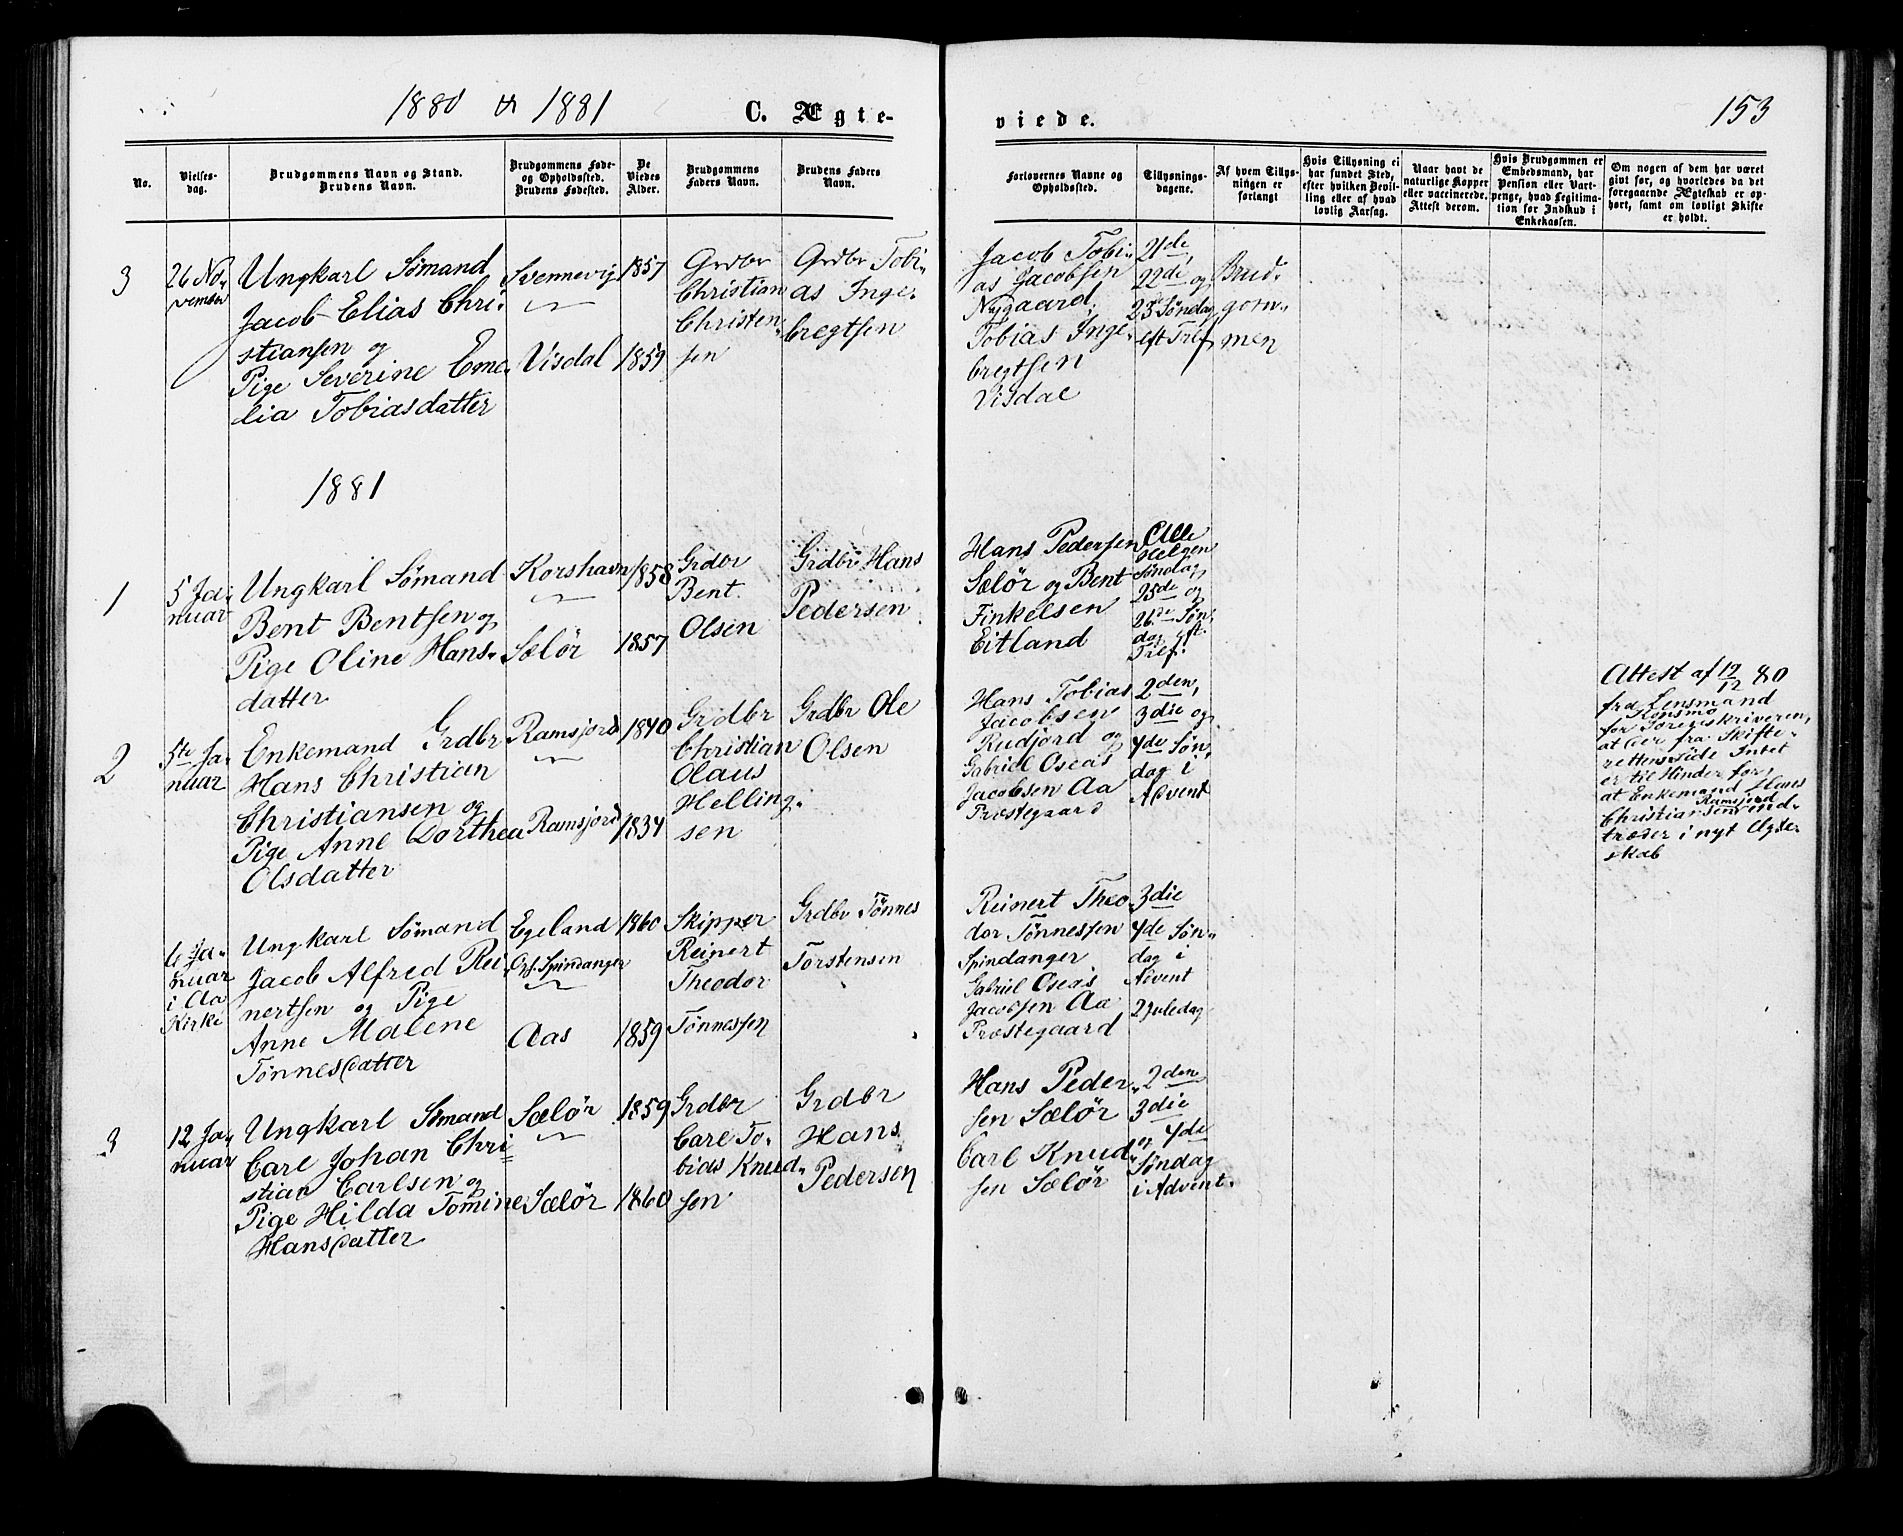 1880 & 1881
C. Ægte-
viede.
153
No.
Vielses-
dag.
Brudgommens Navn og Stand.
Brudens Navn.
Brudgommens Føde-
og Opholdssted.
Brudens Fødested.
De
Viedes
Alder.
Brudgommens
Faders Navn.
Brudens Faders
Navn.
Forlovernes Navne og
Opholdssted.
Tillysnings-
dagene.
Af hvem Tillys-
ningen er
forlangt
Hvis Tillysning ei
har fundet Sted,
efter hvilken Bevil-
ling eller af hvad
lovlig Aarsag.
Naar havt de
naturlige Kopper
eller vaccinerede.
Attest derom.
Hvis Brudgommen er
Embedsmand, har
Pension eller Vart-
penge, hvad Legitima-
tion for Indskud i
Enkekassen.
Om nogen af dem har været
givt før, og hvorledes da det
foregaaende Ægteskab er op-
hørt, samt om lovligt Skifte
er holdt.
3
26 No-
vember
Ungkarl Sømand
Jacob Elias Chri-
stiansen og
Pige Severine Eme-
lia Tobiasdatter
Svennevig
Visdal
1857
1859
Grdbr
Christian
Christen-
sen
Grdbr Tobi-
as Inge-
bregtsen
Jacob Tobi-
as Jacobsen
Nygaard,
Tobias Inge-
bregtsen
Visdal
21de,
22de og
23de Søndag
eft Tref
Brud-
gom-
men
1881
1
5 Ja-
nuar
Ungkarl Sømand
Bent Bentsen og
Pige Oline Hans-
datter
Korshavn
Sælør
1858
1857
Grdbr
Bent
Olsen
Grdbr Hans
Pedersen
Hans Pedersen
Sælør og Bent
Finkelsen
Eitland
Alle
Helgen
Søndag
25de og
26de Søn-
dag eft.
Tref.
2
5te Ja-
nuar
Enkemand Grdbr
Hans Christian
Christiansen og
Pige Anne Dorthea
Olsdatter
Ramsjord
Ramsjord
1840
1834
Grdbr
Christian
Olaus
Helling-
sen
Grdbr Ole
Olsen
Hans Tobias
Jacobsen
Rudjord og
Gabriel Oseas
Jacobsen Aa
Præstegaard
2den,
3die og
4de Søn-
dag i
Advent
Attest af 12/12 80
fra Lensmand
for Sorenskriveren,
at der fra Skifte-
rettens Side Intet
er til Hinder for,
at Enkemand Hans
Christiansen Ramsjord ind-
træder i nyt Ægte-
skab
6 Ja-
nuar
i Aa
Kirke
Ungkarl Sømand
Jacob Alfred Rei-
nertsen og Pige
Anne Malene
Tønnesdatter
Egeland
Oph. Spindanger
Aas
1860
1859
Skipper
Reinert
Theodor
Tønnessen
Grdbr Tønnes
Torstensen
Reinert Theo-
dor Tønnessen
Spindanger
Gabriel Oseas
Jacobsen Aa
Præstegaard
3die
4de Søn-
dag i
Advent
2 Juledag
3
12 Ja-
nuar
Ungkarl Sømand
Carl Johan Chri-
stian Carlsen og
Pige Hilda Tomine
Hansdatter
Sælør
Sælør
1859
1860
Grdbr
Carl To-
bias Knud-
sen
Grdbr
Hans
Pedersen
Hans Peder-
sen Sælør
Carl Knud-
sen Sælør
2den
3die
og 4de
Søndag
i Advent.